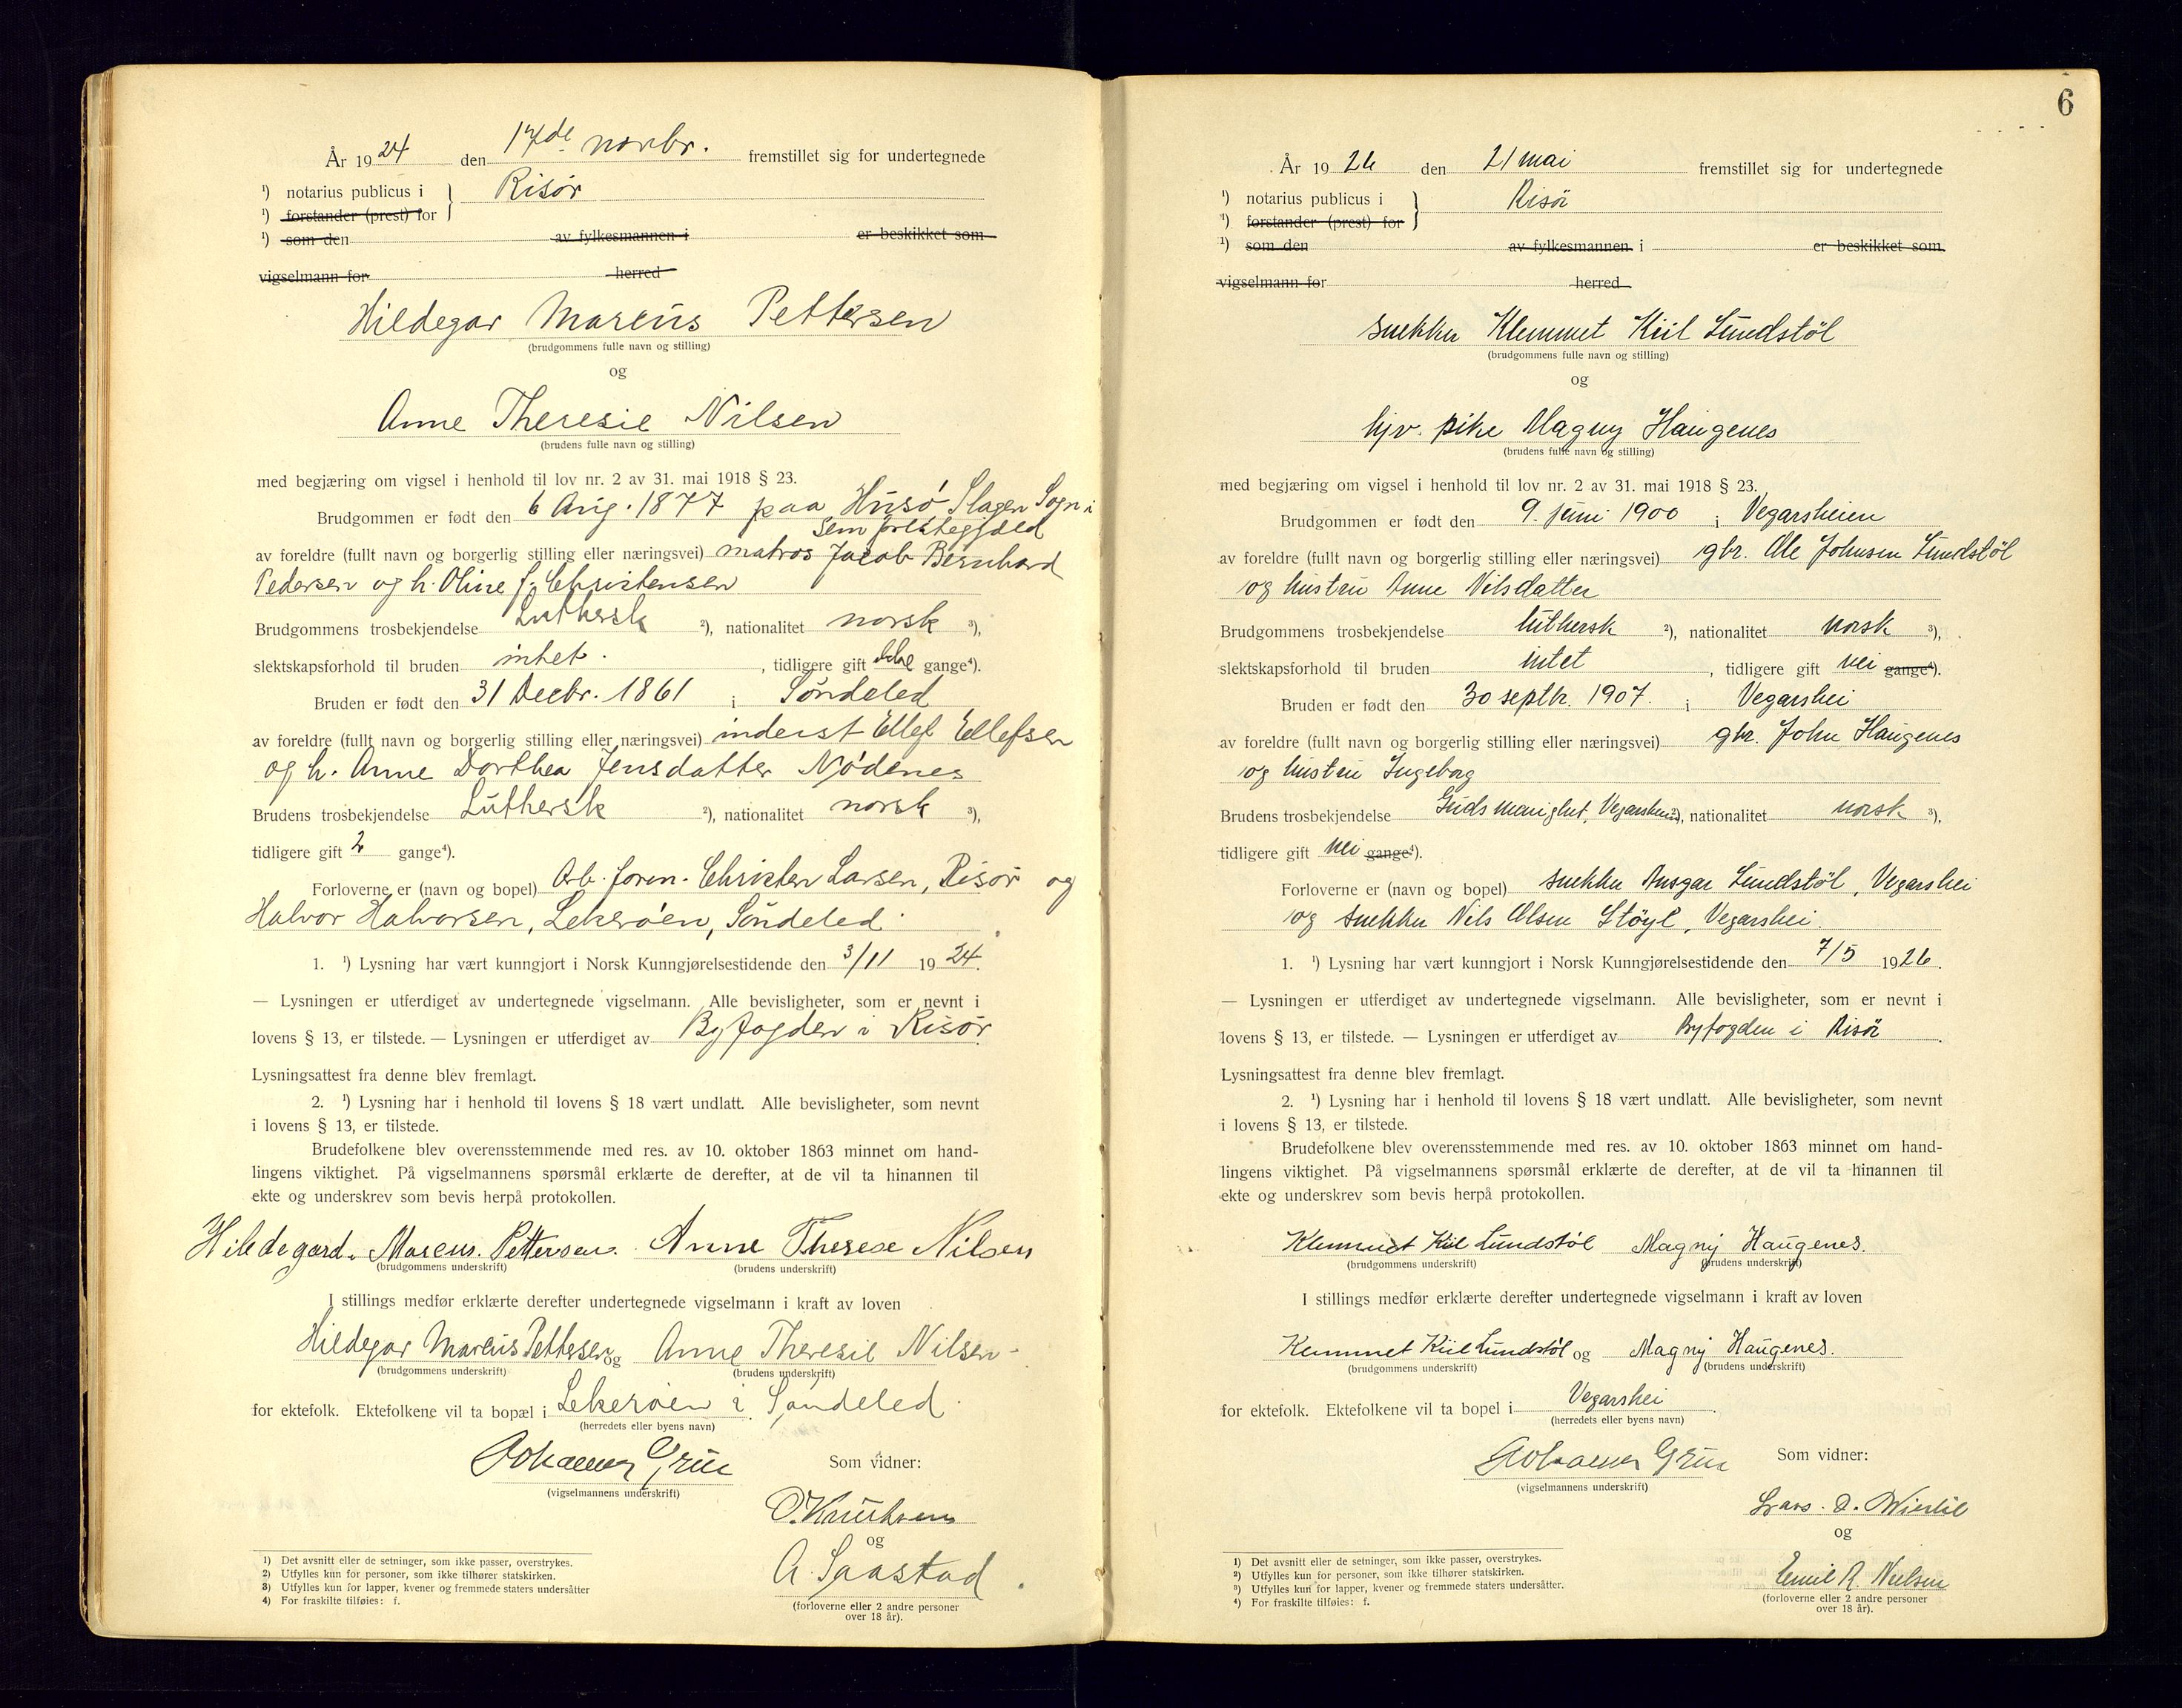 År 19 24 den 17de novbr. fremstillet sig for undertegnede
¹) notarius publicus i } Risör
¹) forstander (prest) for
¹) som den av fylkesmannen i er beskikket som
vigselmann for herred
Hildegar Marcus Pettersen
(brudgommens fulle navn og stilling)
og
Anne Theresie Nilsen
(brudens fulle navn og stilling)
med begjæring om vigsel i henhold til lov nr. 2 av 31. mai 1918 § 23.
Brudgommen er født den 6 Aug. 1877 paa Husö Slagen Sogn i
Sem prestegjeld
av foreldre (fullt navn og borgerlig stilling eller næringsvei) matros Jacob Bernhard
Pedersen og h. Oline f. Christensen
Brudgommens trosbekjendelse Luthersk ²), nationalitet norsk ³),
slektskapsforhold til bruden intet. , tidligere gift ikke gange⁴).
Bruden er født den 31 Decbr. 1861 i Söndeled
av foreldre (fullt navn og borgerlig stilling eller næringsvei) inderst Ellef Ellefsen
og h. Anne Dorthea Jensdatter Nödenes
Brudens trosbekjendelse Luthersk ²), nationalitet norsk ³),
tidligere gift 2 gange⁴).
Forloverne er (navn og bopel) Arb. form. Christen Larsen, Risör og
Halvor Halvorsen, Lekeröen, Söndeled.
1. ¹) Lysning har vært kunngjort i Norsk Kunngjørelsestidende den 3/11 19 24.
— Lysningen er utferdiget av undertegnede vigselmann. Alle bevisligheter, som er nevnt i
lovens § 13, er tilstede. — Lysningen er utferdiget av Byfogden i Risör.
Lysningsattest fra denne blev fremlagt.
2. ¹) Lysning har i henhold til lovens § 18 vært undlatt. Alle bevisligheter, som nevnt
i lovens § 13, er tilstede.
Brudefolkene blev overensstemmende med res. av 10. oktober 1863 minnet om hand-
lingens viktighet. På vigselmannens spørsmål erklærte de derefter, at de vil ta hinannen til
ekte og underskrev som bevis herpå protokollen.
Hildegard. Marcus. Pettersen. Anne Therese Nilsen
(brudgommens underskrift) (brudens underskrift)
I stillings medfør erklærte derefter undertegnede vigselmann i kraft av loven
Hildegar Marcus Pettersen og Anne Theresie Nilsen
(brudgommens underskrift) (brudens underskrift)
for ektefolk. Ektefolkene vil ta bopæl i Lekeröen i Söndeled.
(herredets eller byens navn)
Johannes Grue Som vidner:
(vigselmannens underskrift)
O. Knudsen
og
A. Saastad
(forloverne eller 2 andre personer
over 18 år).
1) Det avsnitt eller de setninger, som ikke passer, overstrykes.
2) Utfylles kun for personer, som ikke tilhører statskirken.
3) Utfylles kun for lapper, kvener og fremmede staters undersåtter
4) For fraskilte tilføies: f.
6
År 19 26 den 21 mai fremstillet sig for undertegnede
¹) notarius publicus i } Risör
¹) forstander (prest) for
¹) som den av fylkesmannen i er beskikket som
vigselmann for herred
snekker Klemmet Kiil Lundstöl
(brudgommens fulle navn og stilling)
og
hjv. pike Magny Haugenes
(brudens fulle navn og stilling)
med begjæring om vigsel i henhold til lov nr. 2 av 31. mai 1918 § 23.
Brudgommen er født den 9. juni 1900 i Vegarsheien
av foreldre (fullt navn og borgerlig stilling eller næringsvei) gbr. Ole Johnsen Lundstöl
og hustru Anne Nilsdatter
Brudgommens trosbekjendelse luthersk ²), nationalitet norsk ³),
slektskapsforhold til bruden intet , tidligere gift nei gange⁴).
Bruden er født den 30 septbr. 1907. i Vegarshei
av foreldre (fullt navn og borgerlig stilling eller næringsvei) gbr. John Haugenes
og hustru Ingeborg
Brudens trosbekjendelse Guds menighet, Vegarshei ²), nationalitet norsk ³),
tidligere gift nei gange⁴).
Forloverne er (navn og bopel) snekker Ansgar Lundstöl, Vegarshei
og snekker Nils Olsen Stöyl, Vegarshei.
1. ¹) Lysning har vært kunngjort i Norsk Kunngjørelsestidende den 7/5 1926.
— Lysningen er utferdiget av undertegnede vigselmann. Alle bevisligheter, som er nevnt i
lovens § 13, er tilstede. — Lysningen er utferdiget av Byfogden i Risör.
Lysningsattest fra denne blev fremlagt.
2. ¹) Lysning har i henhold til lovens § 18 vært undlatt. Alle bevisligheter, som nevnt
i lovens § 13, er tilstede.
Brudefolkene blev overensstemmende med res. av 10. oktober 1863 minnet om hand-
lingens viktighet. På vigselmannens spørsmål erklærte de derefter, at de vil ta hinannen til
ekte og underskrev som bevis herpå protokollen.
Klemmet Kiil Lundstöl Magny Haugenes.
(brudgommens underskrift) (brudens underskrift)
I stillings medfør erklærte derefter undertegnede vigselmann i kraft av loven
Klemmet Kiil Lundstöl og Magny Haugenes.
(brudgommens underskrift) (brudens underskrift)
for ektefolk. Ektefolkene vil ta bopel i Vegarshei.
(herredets eller byens navn)
Johannes Grue Som vidner:
(vigselmannens underskrift)
Lars. O.
og
Emil R. Nielsen
(forloverne eller 2 andre personer
over 18 år).
1) Det avsnitt eller de setninger, som ikke passer, overstrykes.
2) Utfylles kun for personer, som ikke tilhører statskirken.
3) Utfylles kun for lapper, kvener og fremmede staters undersåtter.
4) For fraskilte tilføies: f.